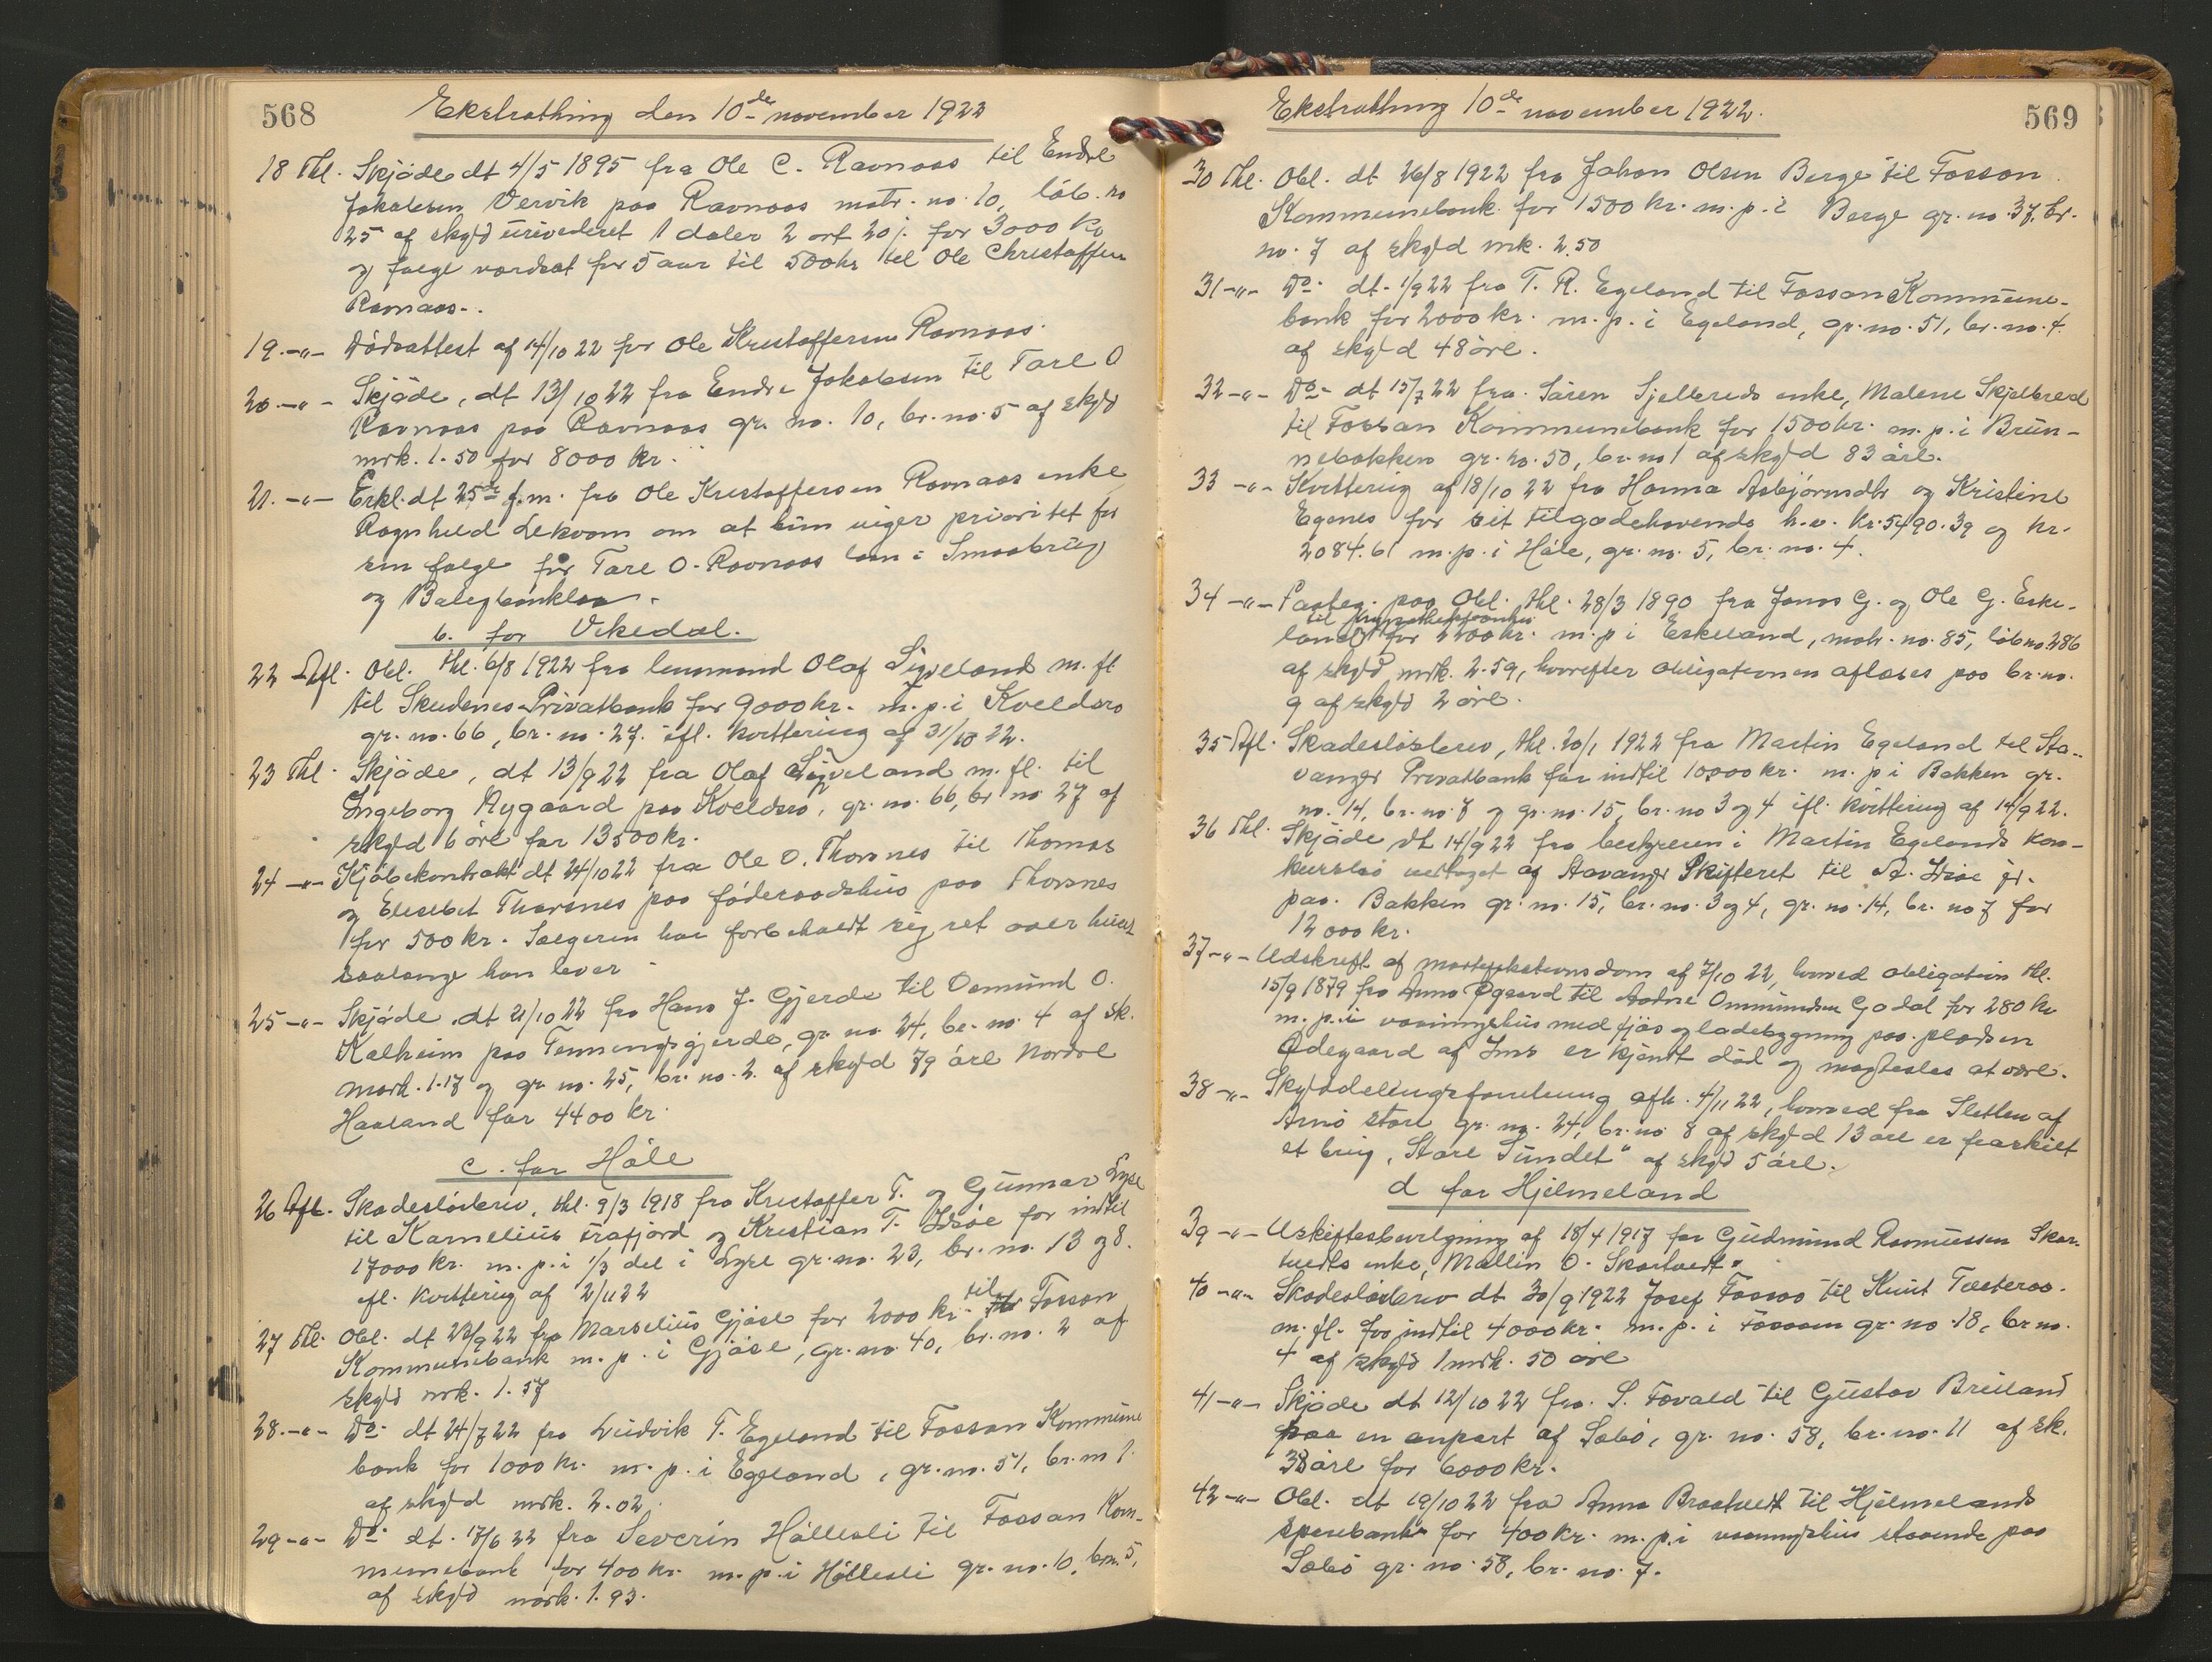 568
Ekstrathing den 10de november 1922
18 Thl. Skjöde dt 4/5 1895 fra Ole C. Ravnaas til Endre
Jakobsen Vervik paa Ravnaas matr. no. 10, löb. no
25 af skyld urevideret 1 daler 2 ort 20 /. for 3000 Kr
og folge værdsat for 5 aar til 500 kr til Ole Christoffer
Ravnaas.
19.-"- Dödsattest af 14/10 22 for Ole Kristoffersen Ravnaas.
20.-"- Skjöde, dt 13/10 22 fra Endre Jakobsen til Tore O
Ravnaas paa Ravnaas gr. no. 10, br. no. 5 af skyld
mrk. 1.50 for 8000 kr.
21.-"- Erkl. dt 25de f.m. fra Ole Kristoffersen Ravnaas enke
Ragnhild Lekvam om at hun viger prioritet for
sin folge for Tore O. Ravnaas laan i Smaabrug
og Boligbanklaa.
b. for Vikedal.
22 Afl. Obl. thl. 6/8 1922 fra lensmand Olaf Sigveland m. fl
til Skudenes Privatbank for 9000 kr. m. p. i Kveldsro
gr. no. 66, br. no. 27. ifl. kvittering af 31/10 22.
23 Thl. Skjöde, dt 13/9 22 fra Olaf Sigveland m. fl. til
Ingeborg Nygaard paa Kveldsro, gr. no. 66, br no 27 af
skyld 6 öre for 13500 kr.
24 -"- Kjöbekontrakt dt 24/10 22 fra Ole O. Thorsnes til Thomas
og Elisebet Thorsnes paa föderaadshus paa Thorsnes
for 500 kr. Sælgeren har forbeholdt sig ret over huset
saalenge han lever.
25 -"- Skjöde dt 21/10 22 fra Hans J. Gjerde til Osmund O.
Kalheim paa Tenningsgjerde, gr no 24, br. no. 4 af sk.
mark. 1.17 og gr no. 25, br. no. 2. af skyld 79 öre Nordre
Haaland for 4400 kr.
c. for Höle
26 Afl. Skadeslösbrev, thl. 9/3 1918 fra Kristoffer T. og Gunnar Lyse
til Kornelius Frafjord og Kristian T. Idsöe for indtil
17000 kr. m. p. i 1/3 del i Lyse gr. no. 23, br. no. 13 og 8.
ifl. kvittering af 2/11 22
27 Thl. Obl. dt 23/9 22 fra Marselius Gjöse for 2000 kr. til Fossan
Kommunebank m. p. i Gjöse, gr. no. 40, br. no. 2 af
skyld mrk. 1.57
28.-"- Do. dt 24/7 22 fra Ludvik T. Egeland til Fossan Kommune
bank for 1000 kr. m. p. i Egeland, gr. no. 51, br. no 1.
af skyld mrk. 2.02.
29 -"- Do. dt. 17/6 22 fra Severin Hollesli til Fossan Kom-
munebank for 400 kr. m. p. i Hollesli gr. no. 6, brn. 5,
af skyld mark. 1.93.
569
Ekstrathing 10de november 1922.
30 Thl. Obl. dt 26/8 1922 fra Johan Olsen Berge til Fossan
Kommunebank for 1500 kr. m. p. i Berge gr. no 37, br.
no. 7 af skyld mk. 2.50
31 -"- Do. dt. 1/9 22 fra T. R. Egeland til Fossan Kommune-
bank for 2000 kr. m. p. i Egeland, gr. no. 51, br. no. 4.
af skyld 48 öre.
32 -"- Do. dt 15/7 22 fra Sören Sjelbreds enke, Malene Skjelbred
til Fossan Kommunebank for 1500 kr. m. p. i Brun-
nebakken gr. no. 50, br. no 1 af skyld 83 öre.
33 -"- Kvittering af 18/10 22 fra Hanna Asbjörnsdtr og Kristine
Egenes for sit tilgodehavende h.v. kr. 5490.39 og kr.
2084.61 m. p. i Höle, gr. no. 5, br. no. 4.
34 -"- Paateg. paa Obl. thl. 28/3 1890 fra Jonas G. og Ole G. Eske-
til Hypothekbanken
land for 2200 kr. m. p. i Eskeland, matr. no. 85, löb no. 286
af skyld mrk. 2.59, hvorefter obligationen aflæses paa br. no.
9 af skyld 2 öre.
35 Afl. Skadeslösbrev, thl. 20/1 1922 fra Martin Egeland til Sta-
vanger Privatbank for indtil 10000 kr. m. p i Bakken gr.
no. 14, br. no. 7 og gr. no. 15, br. no 3 og 4 ifl. kvittering af 14/9 22.
36 Thl. Skjöde dt 14/9 22 fra bestyreren i Martin Egelands kon-
kursbo vedtaget af Stavanger Skifteret til A. Idsöe jr.
paa Bakken gr. no. 15, br. no. 3 og 4, gr. no. 14, br. no 7 for
12000 kr.
37 -"- Udskrift af mortifikationsdom af 7/10 22, hvorved obligation thl.
15/9 1879 fra Anna Ögaard til Aadne Ommundsen Godal for 280 kr
m. p. i vaaningshus med fjös og ladebygning paa pladsen
Ödegaard af Ims er kjendt död og magteslös at være.
38 -"- Skylddelingsforretning afh. 4/11 22, hvorved fra Sletten af
Arnö store gr. no. 24, br. no 8 af skyld 13 öre er fraskilt
et brug, "Store Sundet" af skyld 5 öre.
d for Hjelmeland
39 -"- Uskiftesbevilgning af 18/4 1917 for Gudmund Rasmussen Skar-
tvedts enke, Mallin O. Skartvedt.
40 -"- Skadeslösbrev dt 30/9 1922 Josef Fossan til Knut Tæsteraa.
m. fl. for indtil 4000 kr. m. p. i Fossaan gr. no 18, br no.
4 af skyld 1 mrk. 50 öre
41 -"- Skjöde dt 12/10 22 fra S. Fovald til Gustav Breiland
paa en anpart af Sæbö, gr. no. 58, br. no. 11 af sk.
38 öre for 6000 kr.
42 -"- Obl. dt 19/10 22 fra Anna Brastvedt til Hjelmelands
sparebank for 400 kr. m. p. i vaaningshus staaende paa
Sæbö gr. no. 58, br. no. 7.